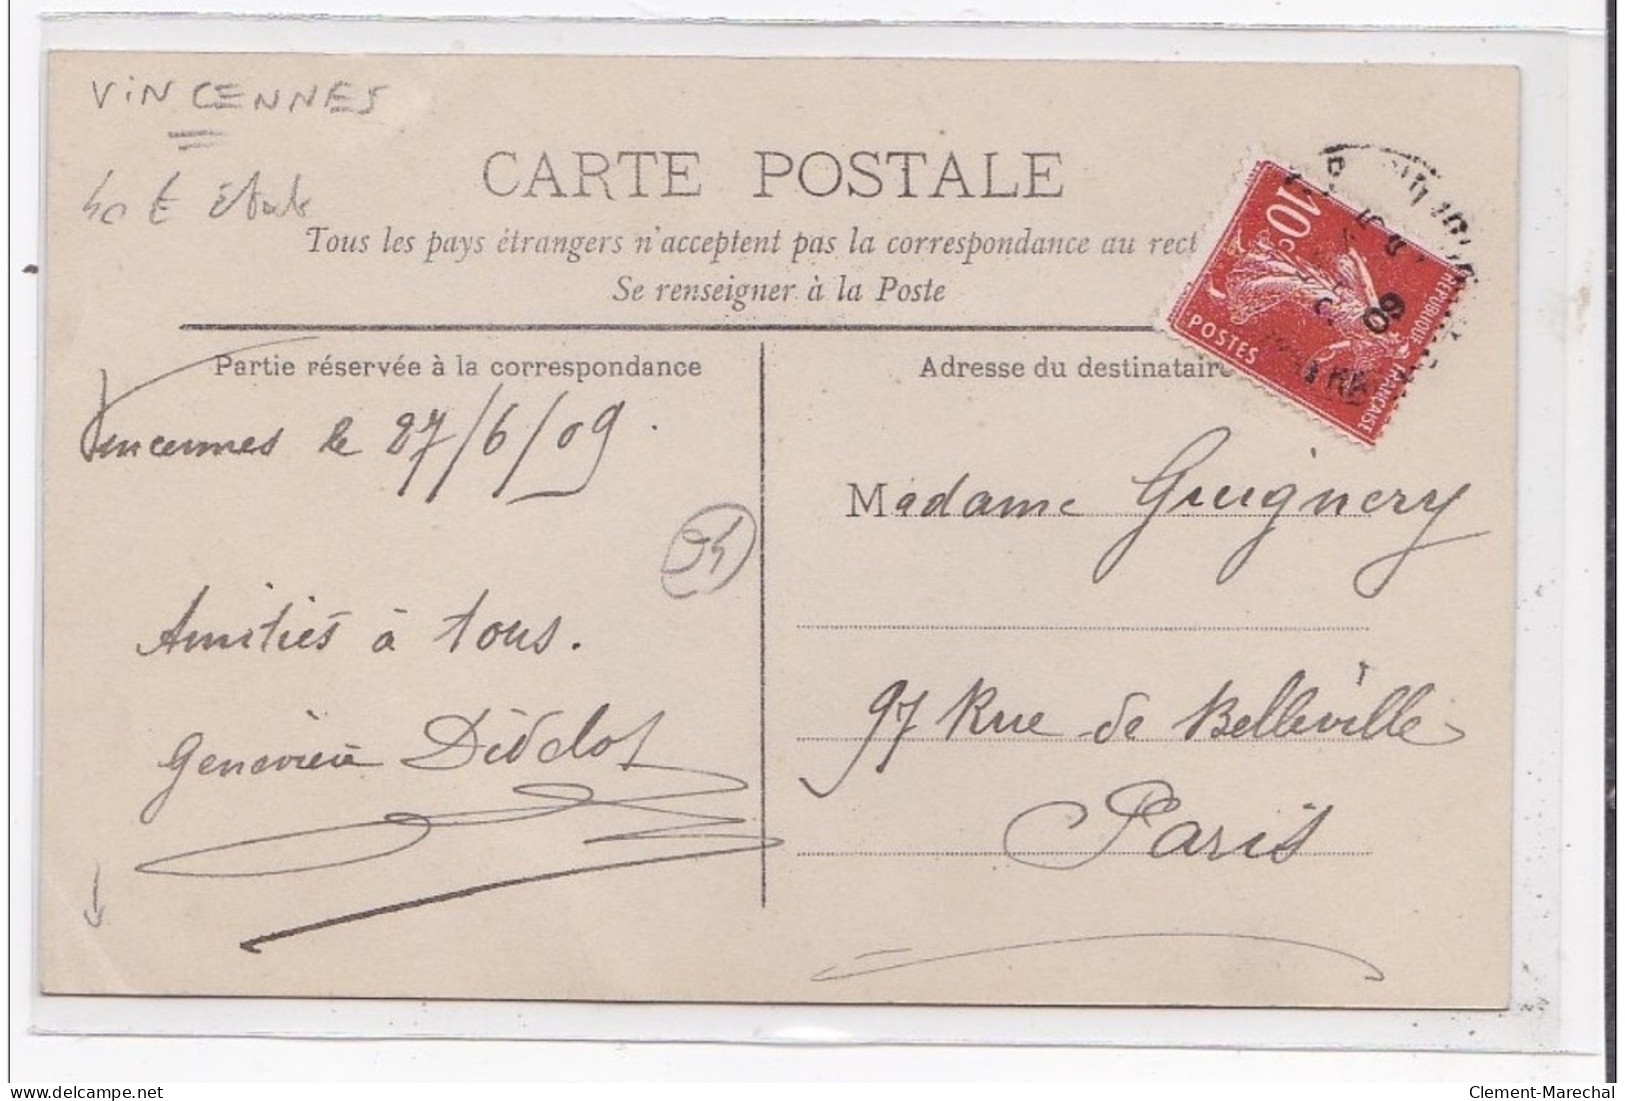 VINCENNES
CARTE POSTALE
Tous les pays étrangers n'acceptent pas la correspondance au rect
Se renseigner à la Poste
10c
POSTES
REPUBLIQUE FRANÇAISE
09
Partie réservée à la correspondance
Vincennes le 27/6/09.
Amitiés à tous.
Geneviève Didelot
Adresse du destinataire
Madame Guignery
97 Rue de Belleville
Paris
Clement-Marechal